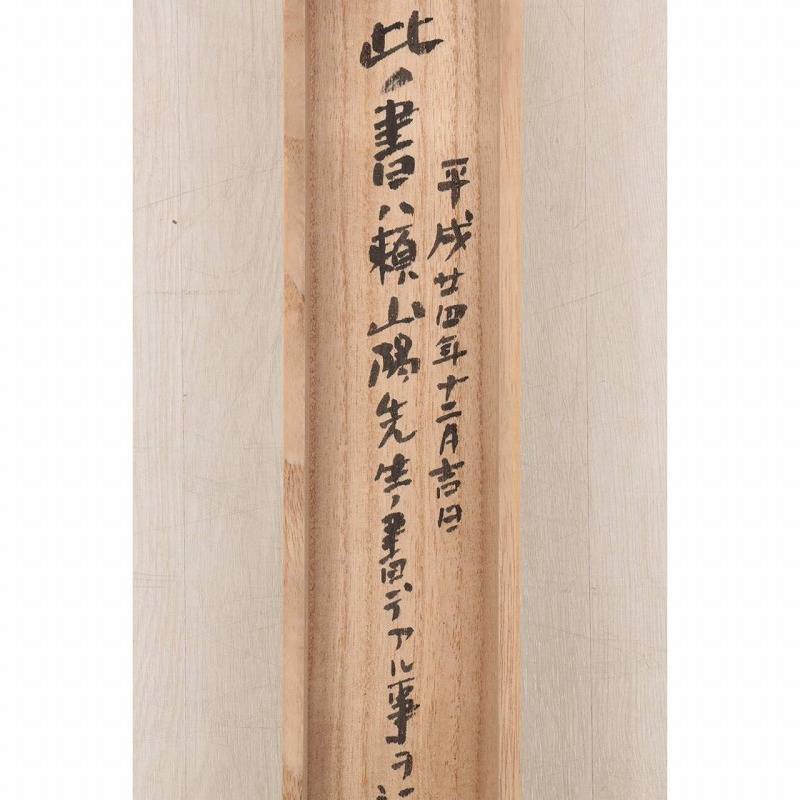 平成廿四年十二月吉日
此ノ書ハ頼山陽先生ノ書デアル事ヲ